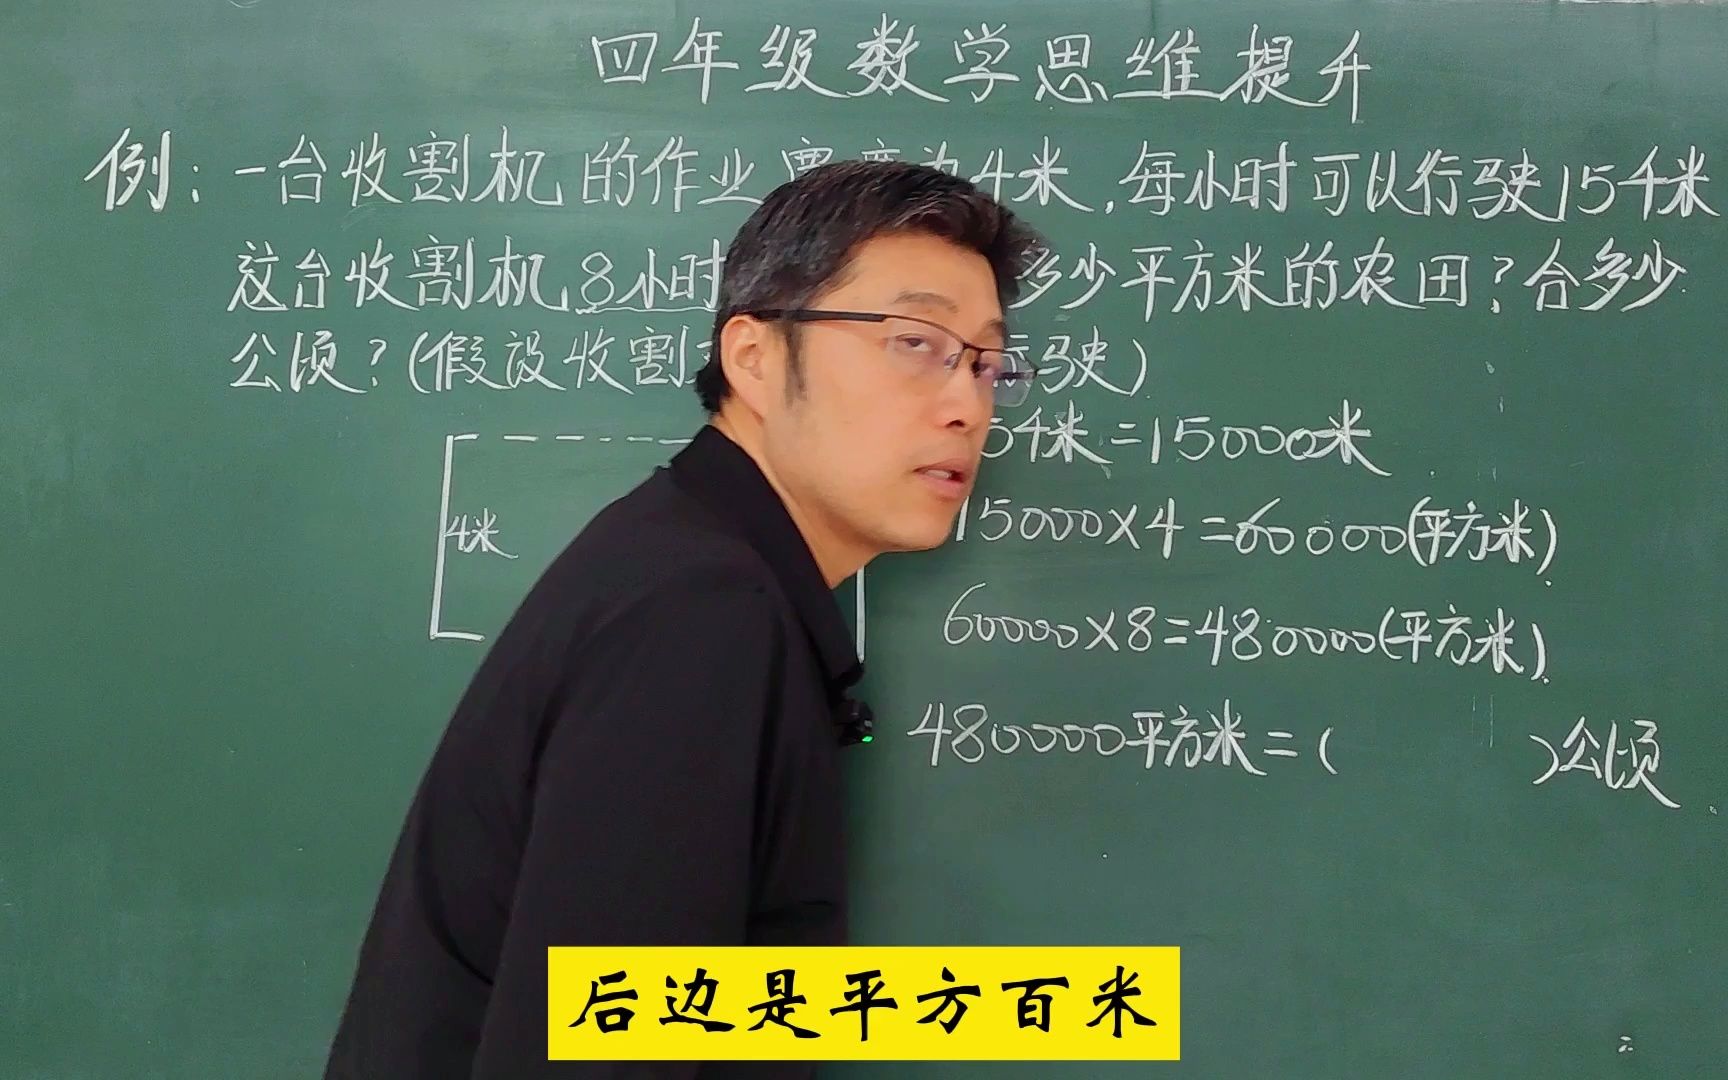 四年级数学思维提升
例：一台收割机的作业宽度为4米，每小时可以行驶15千米
这台收割机8小时 多少平方米的农田？合多少
公顷？（假设收割 行驶）
4米
5千米＝15000米
15000×4＝60000（平方米）
60000×8＝480000（平方米）
480000平方米＝（ ）公顷
后边是平方百米